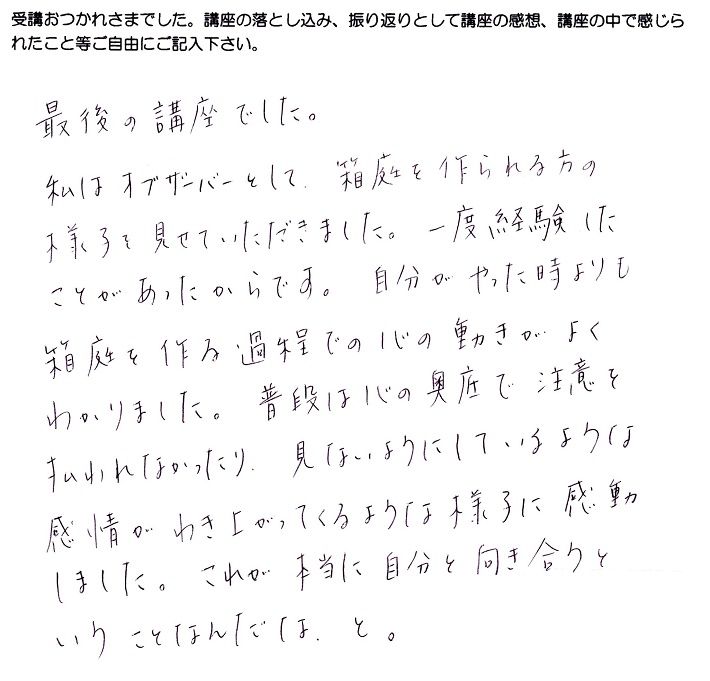 受講おつかれさまでした。講座の落とし込み、振り返りとして講座の感想、講座の中で感じら
れたこと等ご自由にご記入下さい。
最後の講座でした。
私はオブザーバーとして、箱庭を作られる方の
様子を見せていただきました。一度経験した
ことがあったからです。自分がやった時よりも
箱庭を作る過程での心の動きがよく
わかりました。普段は心の奥底で注意を
払われなかったり、見ないようにしているような
感情がわき上がってくるような様子に感動
しました。これが本当に自分と向き合うと
いうことなんだなは、と。